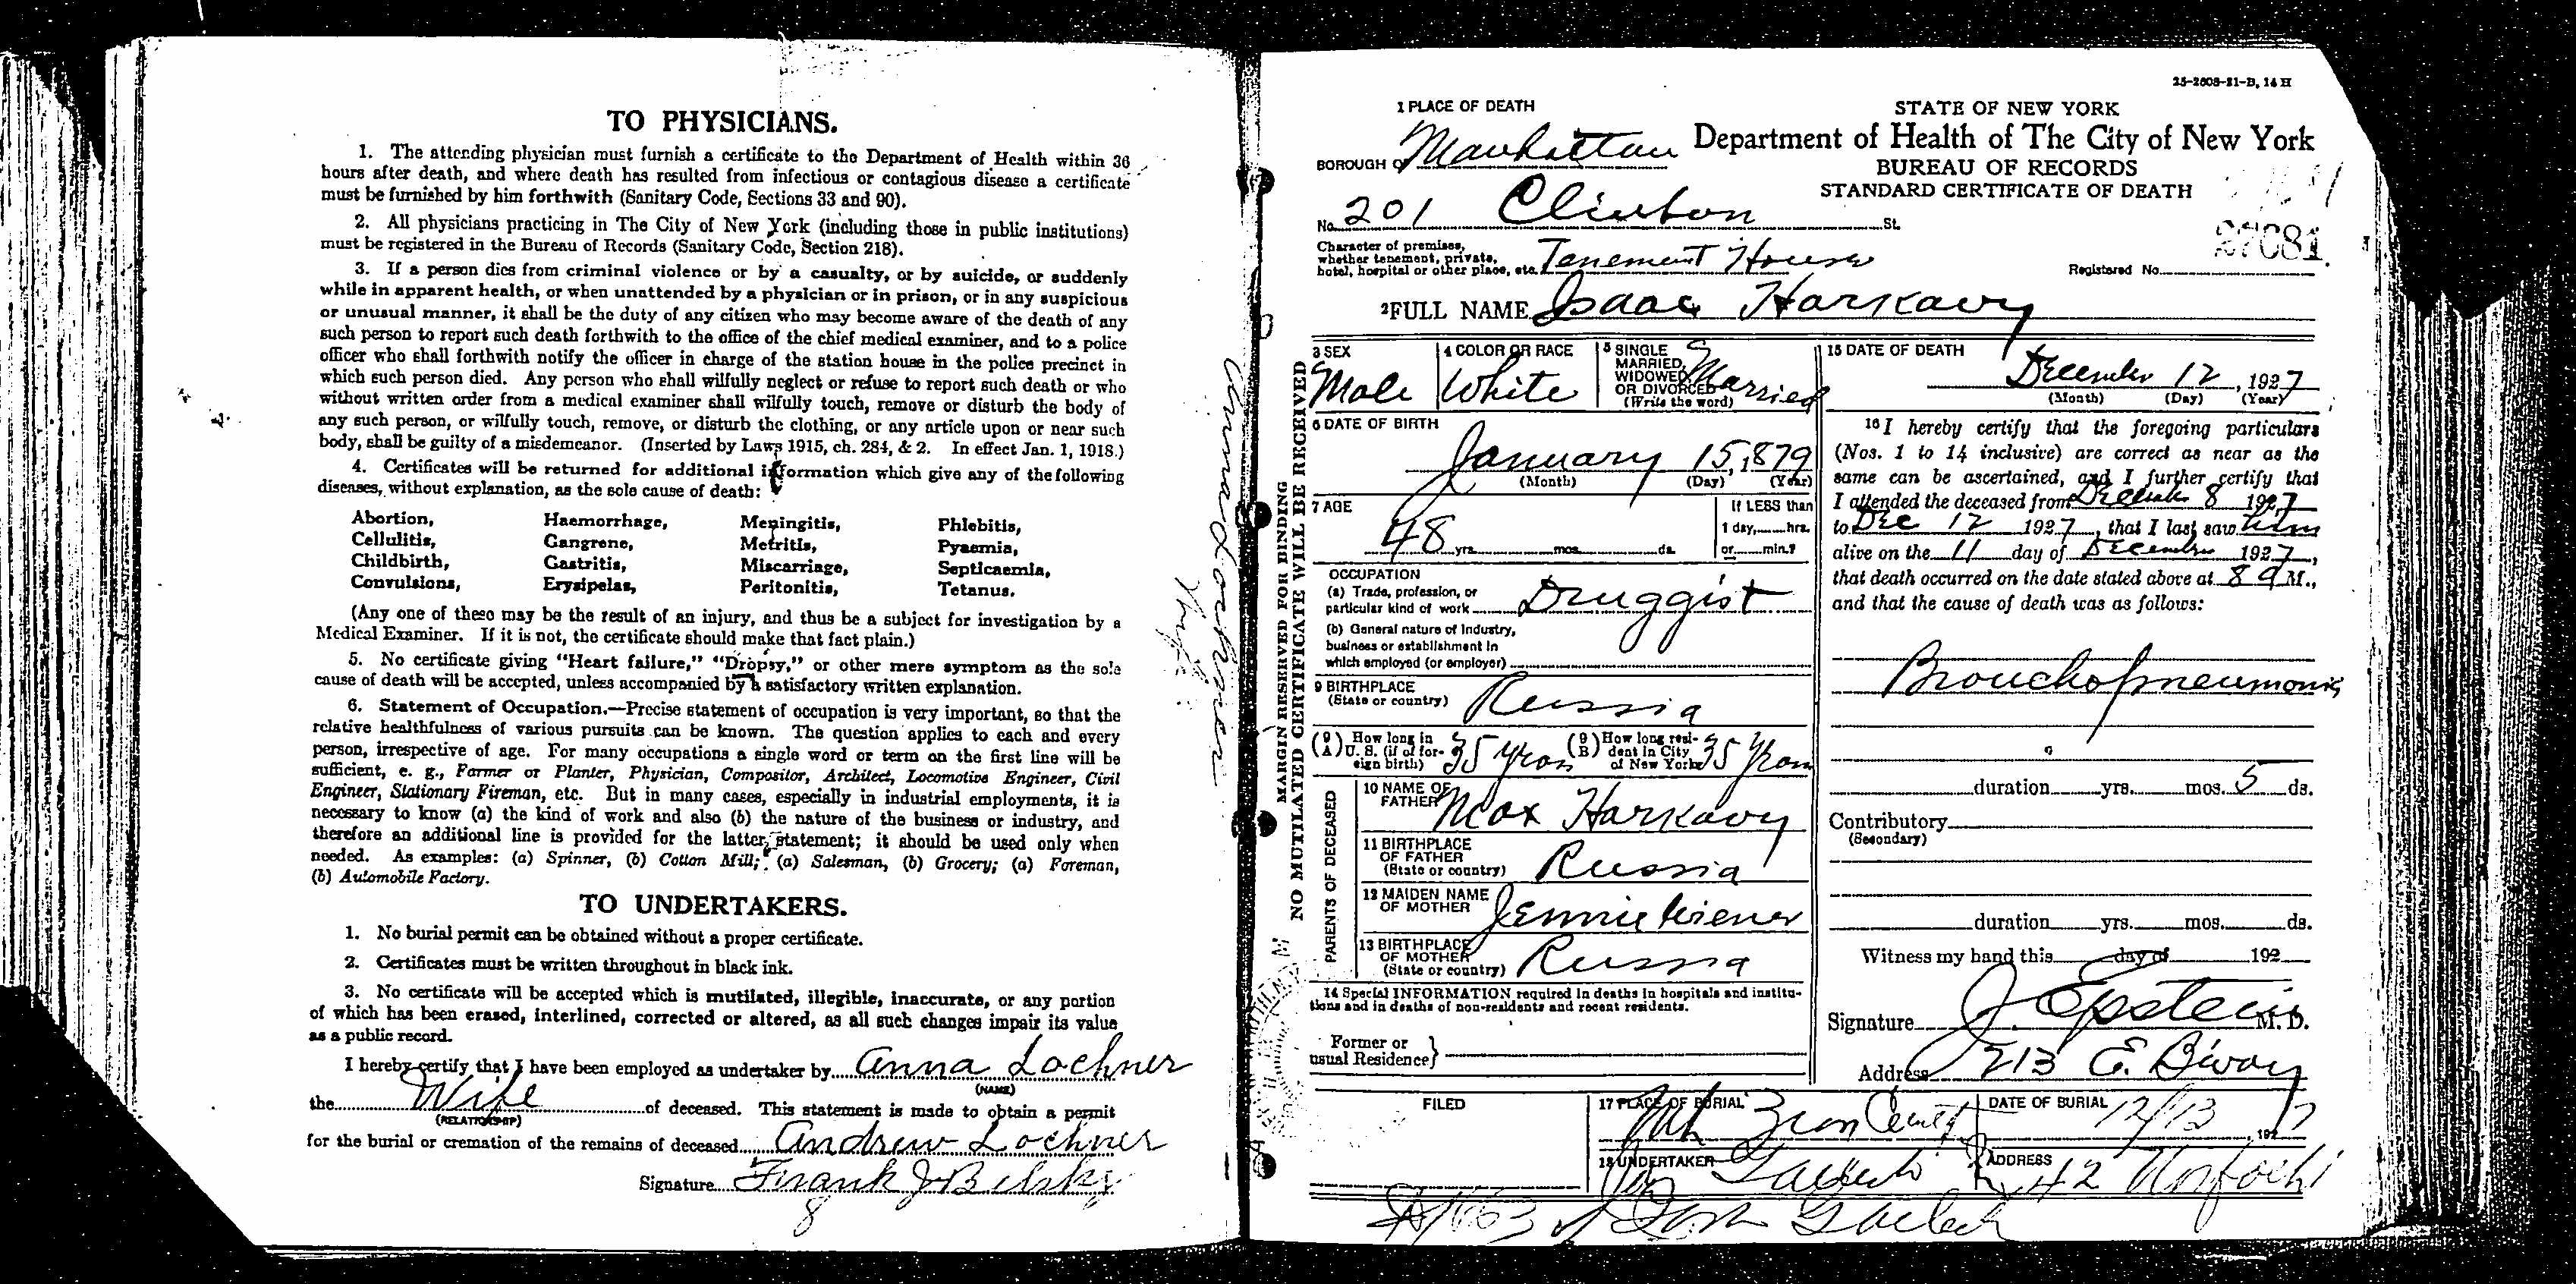 TO PHYSICIANS.
1. The attending physician must furnish a certificate to the Department of Health within 36
hours after death, and where death has resulted from infectious or contagious disease a certificate
must be furnished by him forthwith (Sanitary Code, Sections 33 and 90).
2. All physicians practicing in The City of New York (including those in public institutions)
must be registered in the Bureau of Records (Sanitary Code, Section 218).
3. If a person dies from criminal violence or by a casualty, or by suicide, or suddenly
while in apparent health, or when unattended by a physician or in prison, or in any suspicious
or unusual manner, it shall be the duty of any citizen who may become aware of the death of any
such person to report such death forthwith to the office of the chief medical examiner, and to a police
officer who shall forthwith notify the officer in charge of the station house in the police precinct in
which such person died. Any person who shall wilfully neglect or refuse to report such death or who
without written order from a medical examiner shall wilfully touch, remove or disturb the body of
any such person, or wilfully touch, remove, or disturb the clothing, or any article upon or near such
body, shall be guilty of a misdemeanor. (Inserted by Laws 1915, ch. 284, & 2. In effect Jan. 1, 1918.)
4. Certificates will be returned for additional information which give any of the following
diseases, without explanation, as the sole cause of death:
Abortion, Haemorrhage, Meningitis, Phlebitis,
Cellulitis, Gangrene, Metritis, Pyaemia,
Childbirth, Gastritis, Miscarriage, Septicaemia,
Convulsions, Erysipelas, Peritonitis, Tetanus.
(Any one of these may be the result of an injury, and thus be a subject for investigation by a
Medical Examiner. If it is not, the certificate should make that fact plain.)
5. No certificate giving "Heart failure," "Dropsy," or other mere symptom as the sole
cause of death will be accepted, unless accompanied by a satisfactory written explanation.
6. Statement of Occupation.—Precise statement of occupation is very important, so that the
relative healthfulness of various pursuits can be known. The question applies to each and every
person, irrespective of age. For many occupations a single word or term on the first line will be
sufficient, e. g., Farmer or Planter, Physician, Compositor, Architect, Locomotive Engineer, Civil
Engineer, Stationary Fireman, etc. But in many cases, especially in industrial employments, it is
necessary to know (a) the kind of work and also (b) the nature of the business or industry, and
therefore an additional line is provided for the latter statement; it should be used only when
needed. As examples: (a) Spinner, (b) Cotton Mill; (a) Salesman, (b) Grocery; (a) Foreman,
(b) Automobile Factory.
TO UNDERTAKERS.
1. No burial permit can be obtained without a proper certificate.
2. Certificates must be written throughout in black ink.
3. No certificate will be accepted which is mutilated, illegible, inaccurate, or any portion
of which has been erased, interlined, corrected or altered, as all such changes impair its value
as a public record.
I hereby certify that I have been employed as undertaker by Anna Lochner
(NAME)
the Wife of deceased. This statement is made to obtain a permit
(RELATIONSHIP)
for the burial or cremation of the remains of deceased Andrew Lochner
Signature Frank J Belsky
8
Anna Lochner
Wife
25-2608-21-B, 14 H
1 PLACE OF DEATH
STATE OF NEW YORK
Department of Health of The City of New York
BUREAU OF RECORDS
STANDARD CERTIFICATE OF DEATH
BOROUGH OF Manhattan
No. 201 Clinton St.
Character of premises,
whether tenement, private,
hotel, hospital or other place, etc. Tenement House
27081
Registered No.
2 FULL NAME Isaac Harkavy
MARGIN RESERVED FOR BINDING
NO MUTILATED CERTIFICATE WILL BE RECEIVED
3 SEX
Male
4 COLOR OR RACE
White
5 SINGLE
MARRIED,
WIDOWED
OR DIVORCED
(Write the word)
Married
6 DATE OF BIRTH
January 15, 1879
(Month) (Day) (Year)
7 AGE
48 yrs. mos. ds.
If LESS than
1 day, hrs.
or min.?
OCCUPATION
(a) Trade, profession, or
particular kind of work Druggist
(b) General nature of Industry,
business or establishment in
which employed (or employer)
9 BIRTHPLACE
(State or country) Russia
(9 A) How long in
U. S. (if of for-
eign birth) 35 Years
(9 B) How long resi-
dent in City
of New York 35 Years
PARENTS OF DECEASED
10 NAME OF
FATHER Max Harkavy
11 BIRTHPLACE
OF FATHER
(State or country) Russia
12 MAIDEN NAME
OF MOTHER Jennie Wiener
13 BIRTHPLACE
OF MOTHER
(State or country) Russia
14 Special INFORMATION required in deaths in hospitals and institu-
tions and in deaths of non-residents and recent residents.
Former or
usual Residence
15 DATE OF DEATH
December 12, 1927
(Month) (Day) (Year)
16 I hereby certify that the foregoing particulars
(Nos. 1 to 14 inclusive) are correct as near as the
same can be ascertained, and I further certify that
I attended the deceased from December 8 1927
to Dec 12 1927, that I last saw him
alive on the 11 day of December 1927,
that death occurred on the date stated above at 8 A M.,
and that the cause of death was as follows:
Bronchopneumonia
duration yrs. mos. 5 ds.
Contributory
(Secondary)
duration yrs. mos. ds.
Witness my hand this day of 192
Signature J. Epstein M. D.
Address 213 E. Bway
FILED
17 PLACE OF BURIAL
Mt Zion Cemet
DATE OF BURIAL
12/13 1927
18 UNDERTAKER
ADDRESS
42 Norfolk